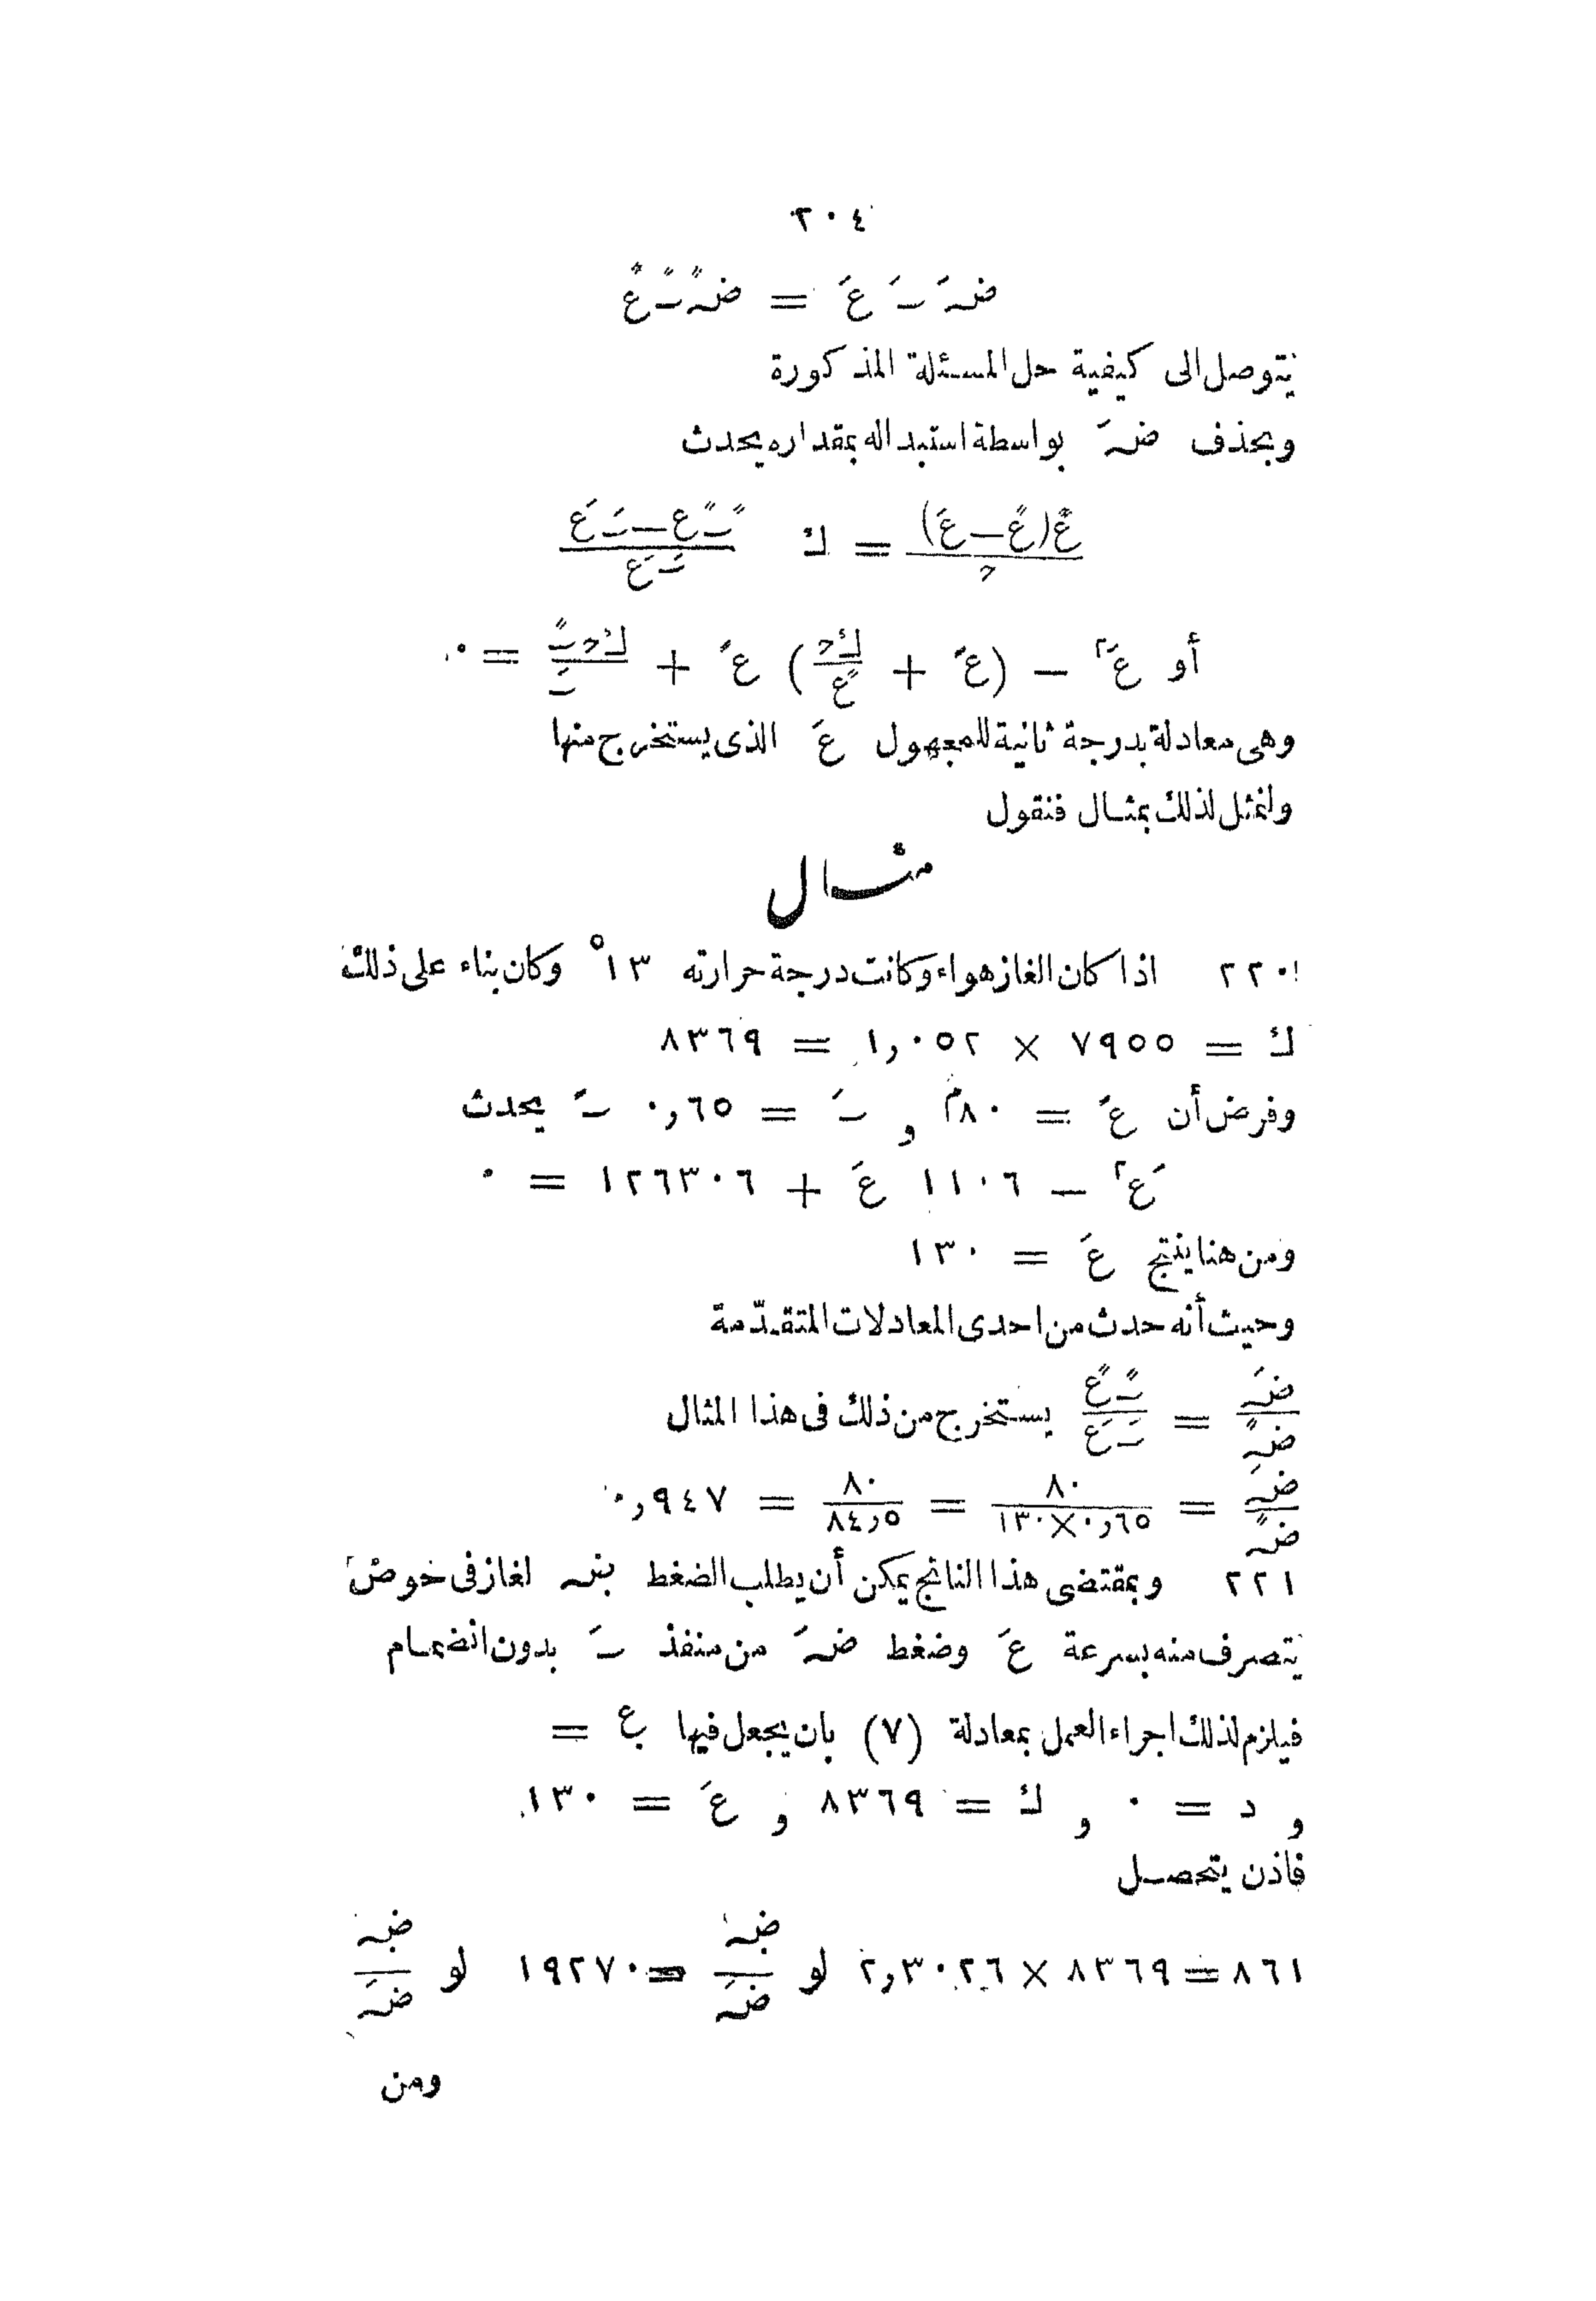 ٢٠٤
ضَہ ٮَ عَ = ضًہ ٮً عً
يتوصل الى كيفية حل المسئلة المذكورة
وبحذف ضَہ بواسطة استبداله بمقداره يحدث
عً(عً – عَ)/ح = ك (ٮً عً – ٮَ عَ)/ٮَ عَ
أو عَ٢ – (عً + ك ح/عً) عَ + ك ح ٮً/ٮَ = ٠
وهى معادلة بدرجة ثانية للمجهول عَ الذى يستخرج منها
ولنمثل لذلك بمثال فنقول
مثال
٢٢٠ اذا كان الغاز هواء وكانت درجة حرارته ١٣° وكان بناء على ذلك
ك = ٧٩٥٥ × ١,٠٥٢ = ٨٣٦٩
وفرض أن عً = ٨٠م و ٮَ = ٠,٦٥ ٮً يحدث
عَ٢ – ١١٠٦ عَ + ١٢٦٣٠٦ = ٠
ومن هنا ينتج عَ = ١٣٠
وحيث أنه حدث من احدى المعادلات المتقدّمة
ضَہ/ضًہ = ٮً عً/ٮَ عَ يستخرج من ذلك فى هذا المثال
ضَہ/ضًہ = ٨٠/١٣٠×٠,٦٥ = ٨٠/٨٤,٥ = ٠,٩٤٧
٢٢١ وبمقتضى هذا الناتج يمكن أن يطلب الضغط ضہ لغاز فى حوض
يتصرف منه بسرعة عَ وضغط ضَہ من منفذ ٮَ بدون انضمام
فيلزم لذلك اجراء العمل بمعادلة (٧) بان يجعل فيها ع =
و د = ٠ و ك = ٨٣٦٩ و عَ = ١٣٠
فاذن يتحصل
٨٦١ = ٨٣٦٩ × ٢,٣٠٢٦ لو ضہ/ضَہ = ١٩٢٧٠ لو ضہ/ضَہ
ومن